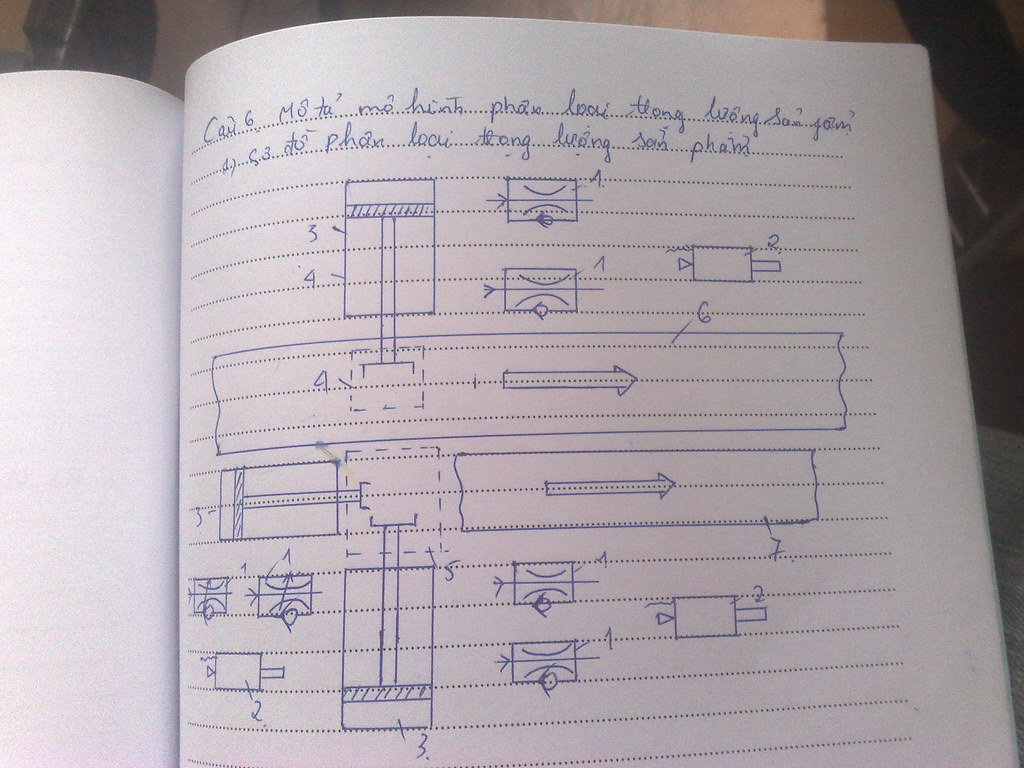 Câu 6. Mô tả mô hình phân loại trọng lượng sản phẩm
a, S.3 đồ phân loại trọng lượng sản phẩm
1
3
2
4
1
6
4
3
7
1 1 5 1
2
1
2
3